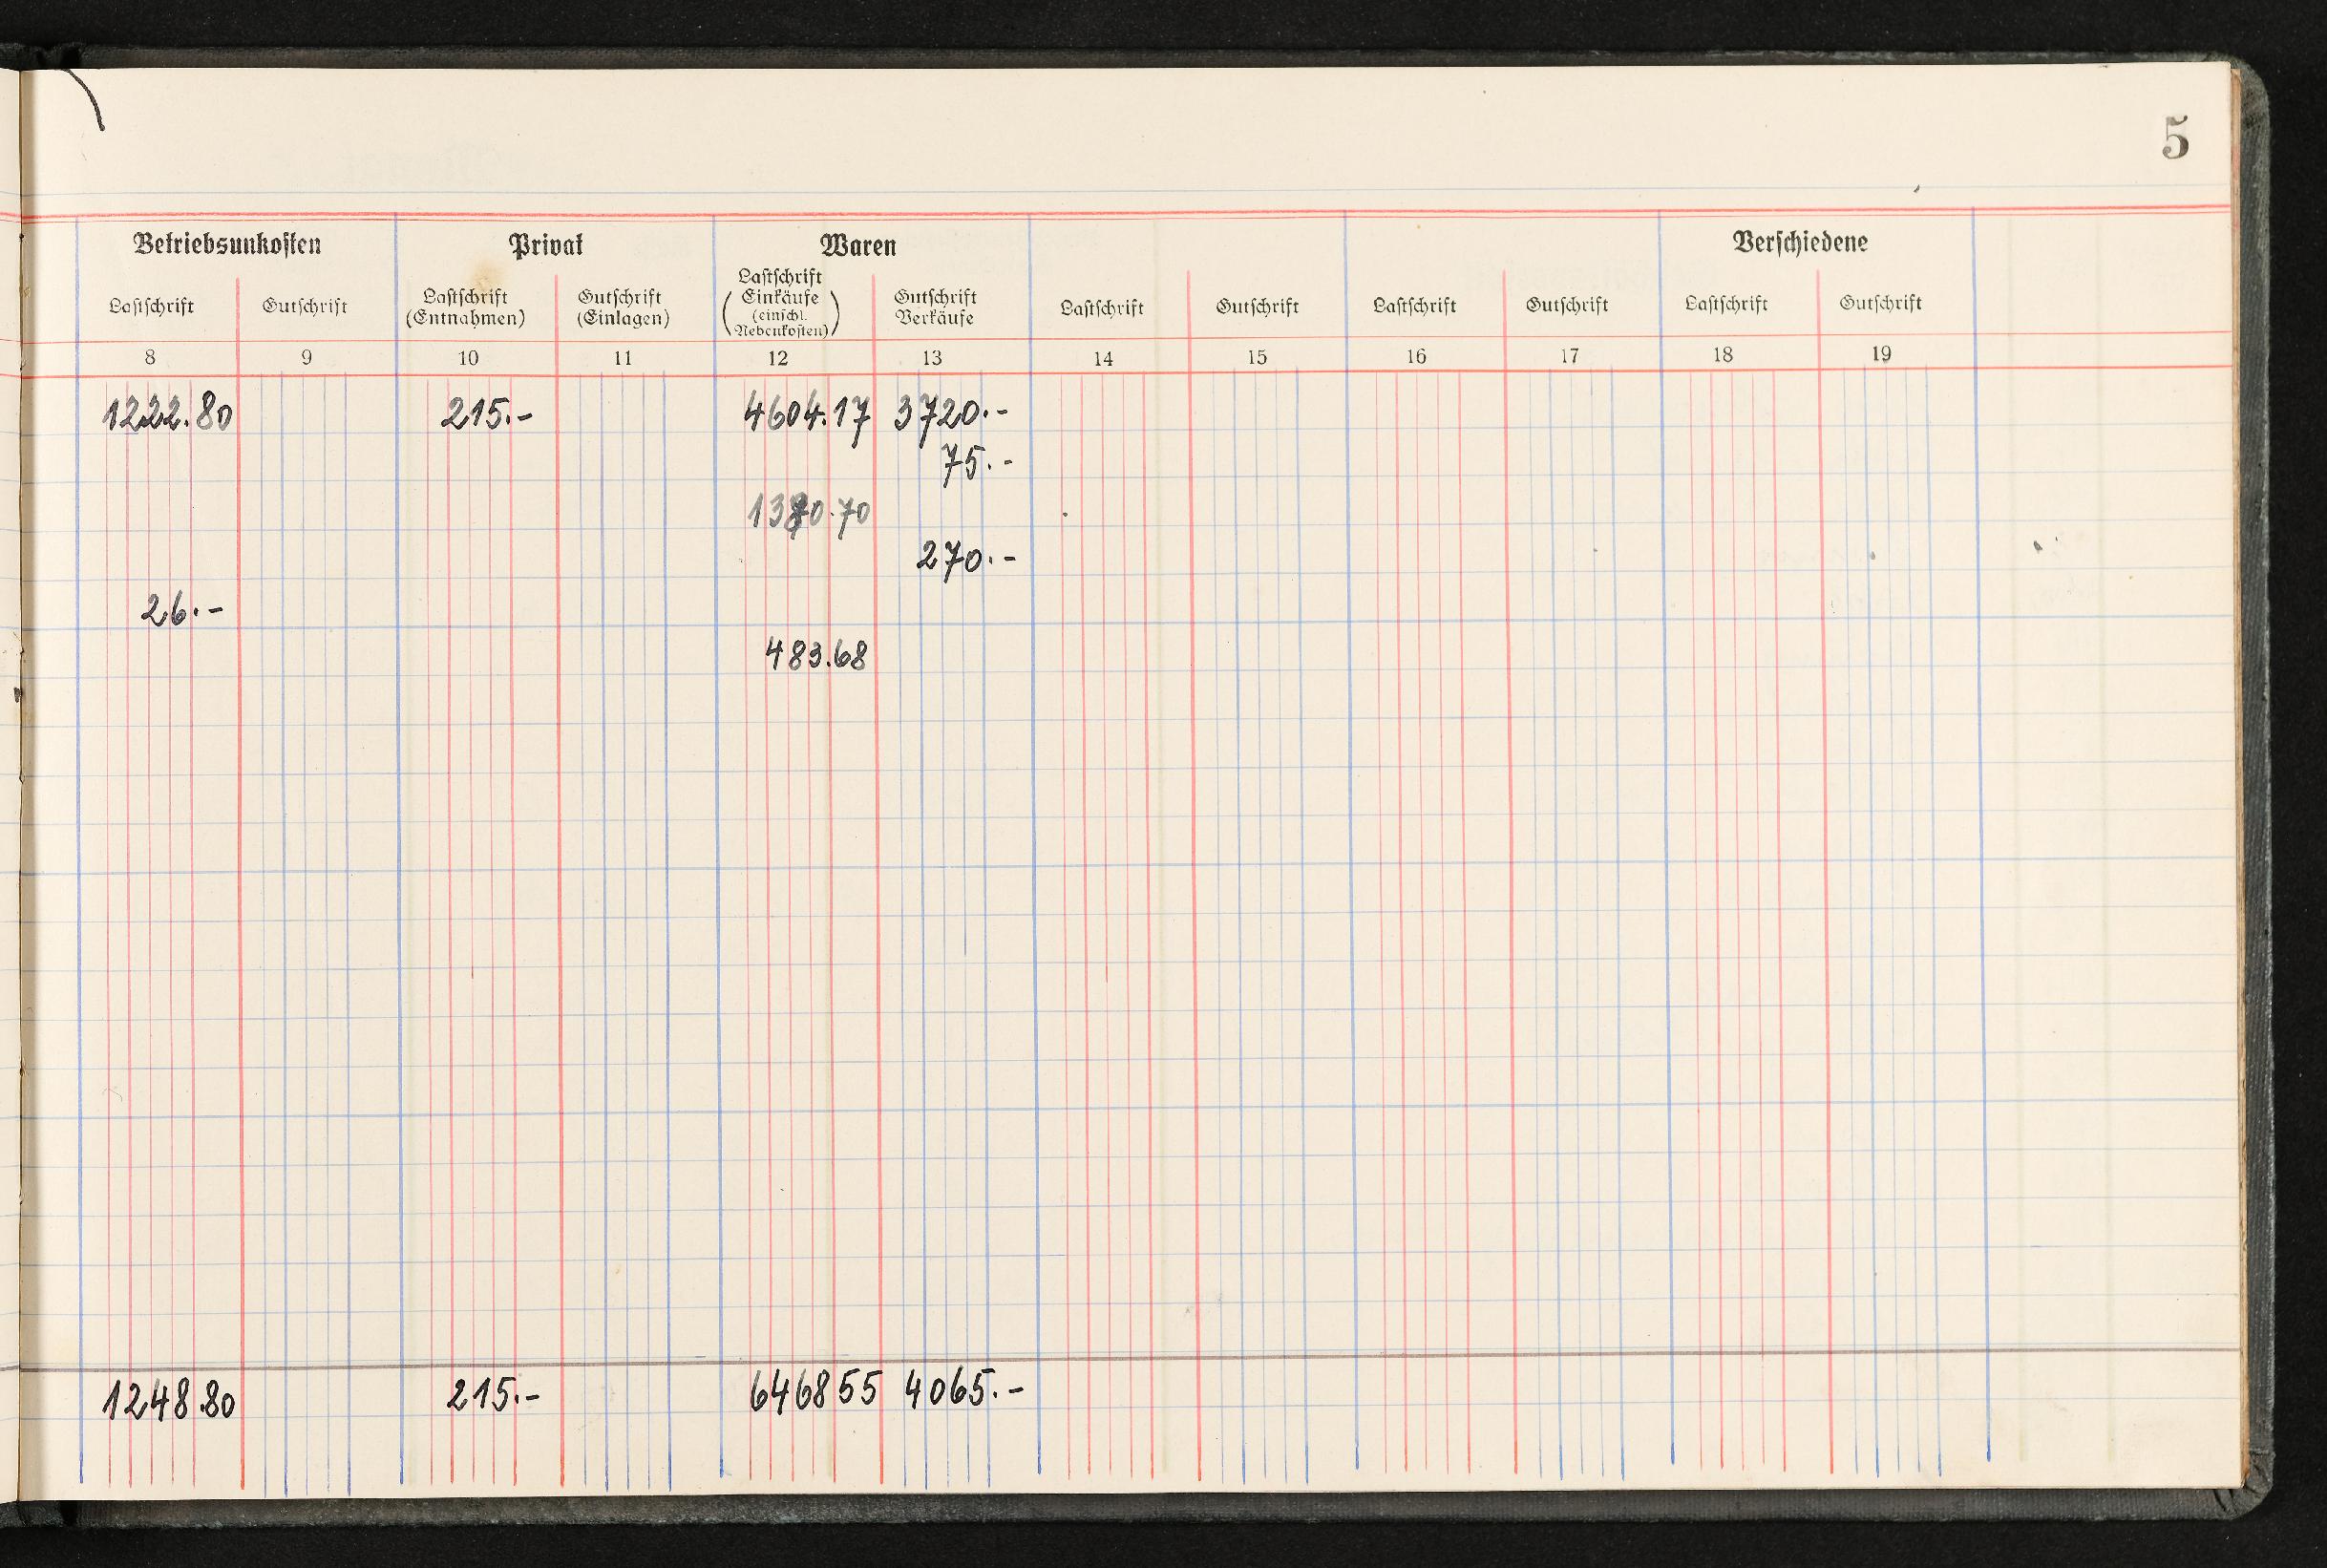 5
Betriebsunkosten Privat Waren Verschiedene
Lastschrift Gutschrift Lastschrift (Entnahmen) Gutschrift (Einlagen) Lastschrift (Einkäufe (einschl. Nebenkosten)) Gutschrift Verkäufe Lastschrift Gutschrift Lastschrift Gutschrift Lastschrift Gutschrift
8 9 10 11 12 13 14 15 16 17 18 19
1222.80 215.- 4604.17 3720.-
75.-
1380.70
270.-
26.-
483.68
1248.80 215.- 646855 4065.-